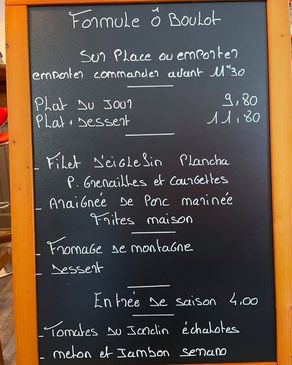 Formule Ô Boulot
Sur Place ou emporter
emporter commander avant 11h30
Plat Du Jour 9,80
Plat + Dessert 11,80
- Filet D'eiglefin Plancha
P. Grenailles et Courgettes
- Araignée de Porc marinée
Frites maison
- Fromage de montagne
- Dessert
Entrée de saison 4,00
- Tomates Du Jardin échalotes
- melon et Jambon serrano